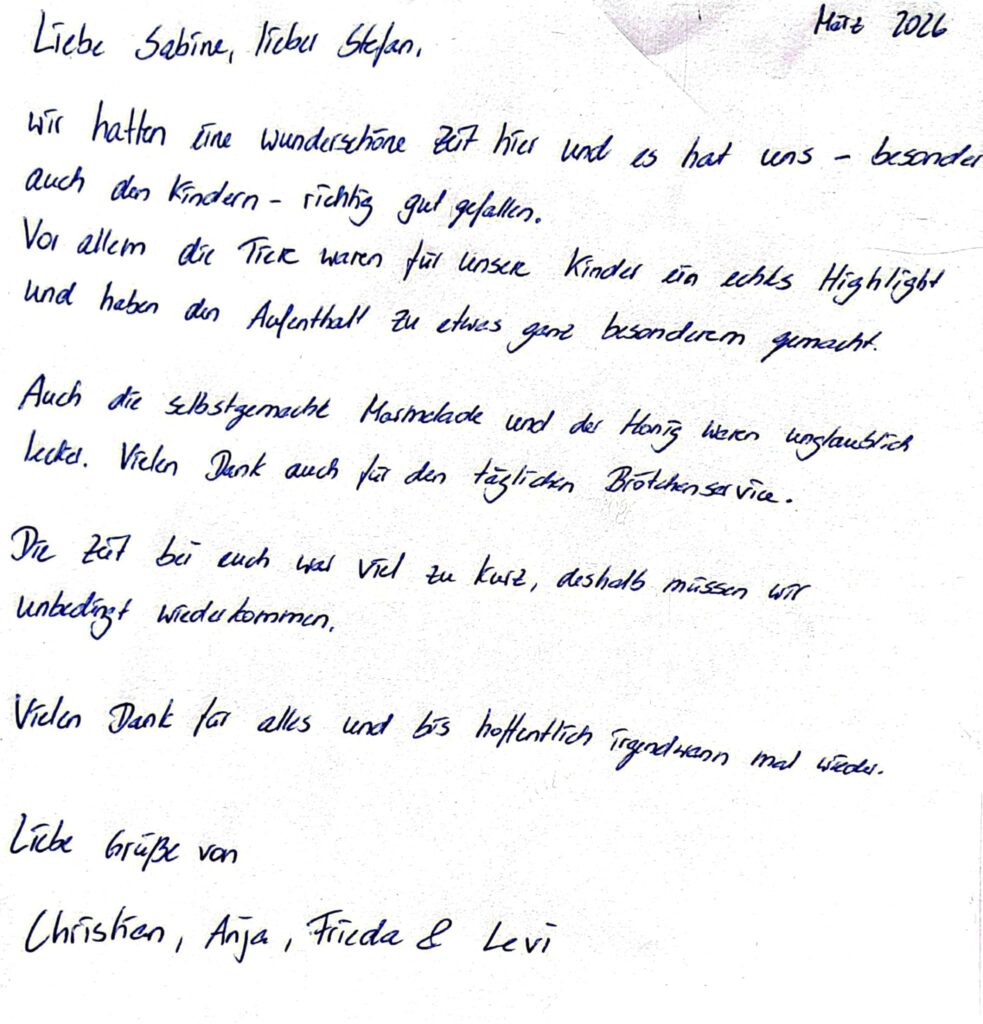 März 2026
Liebe Sabine, lieber Stefan,
wir hatten eine wunderschöne Zeit hier und es hat uns - besonder
auch den Kindern - richtig gut gefallen.
Vor allem die Tiere waren für unsere Kinder ein echtes Highlight
und haben den Aufenthalt zu etwas ganz besonderem gemacht.
Auch die selbstgemachte Marmelade und der Honig waren unglaublich
lecker. Vielen Dank auch für den täglichen Brötchenservice.
Die Zeit bei euch war viel zu kurz, deshalb müssen wir
unbedingt wiederkommen.
Vielen Dank für alles und bis hoffentlich irgendwann mal wieder.
Liebe Grüße von
Christian, Anja, Frieda & Levi